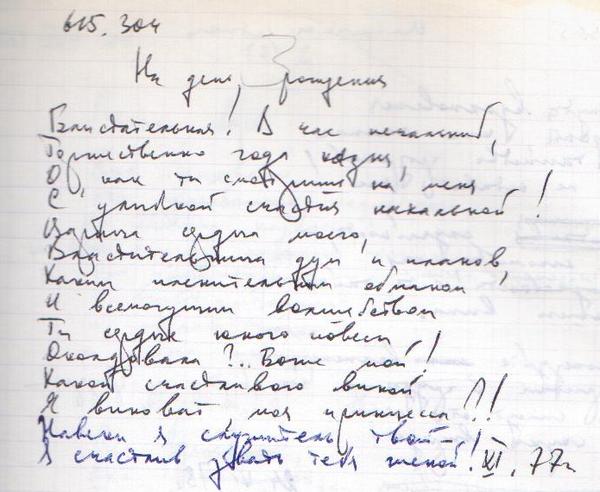 615. 304
На день рождения
Блистательная! В час печальный,
Торжественно года
О, как ты смотришь на меня
С улыбкой счастья нахальной!
Царица сердца моего,
Властительница дум и планов,
Каким пленительным обманом
И всемогущим волшебством
Ты сердце юного повесы
Околдовала?.. Боже мой!
Какой счастливого виной
Я виноват, моя принцесса?!
Навеки я служитель твой –
Я счастлив звать тебя женой! XI. 77г